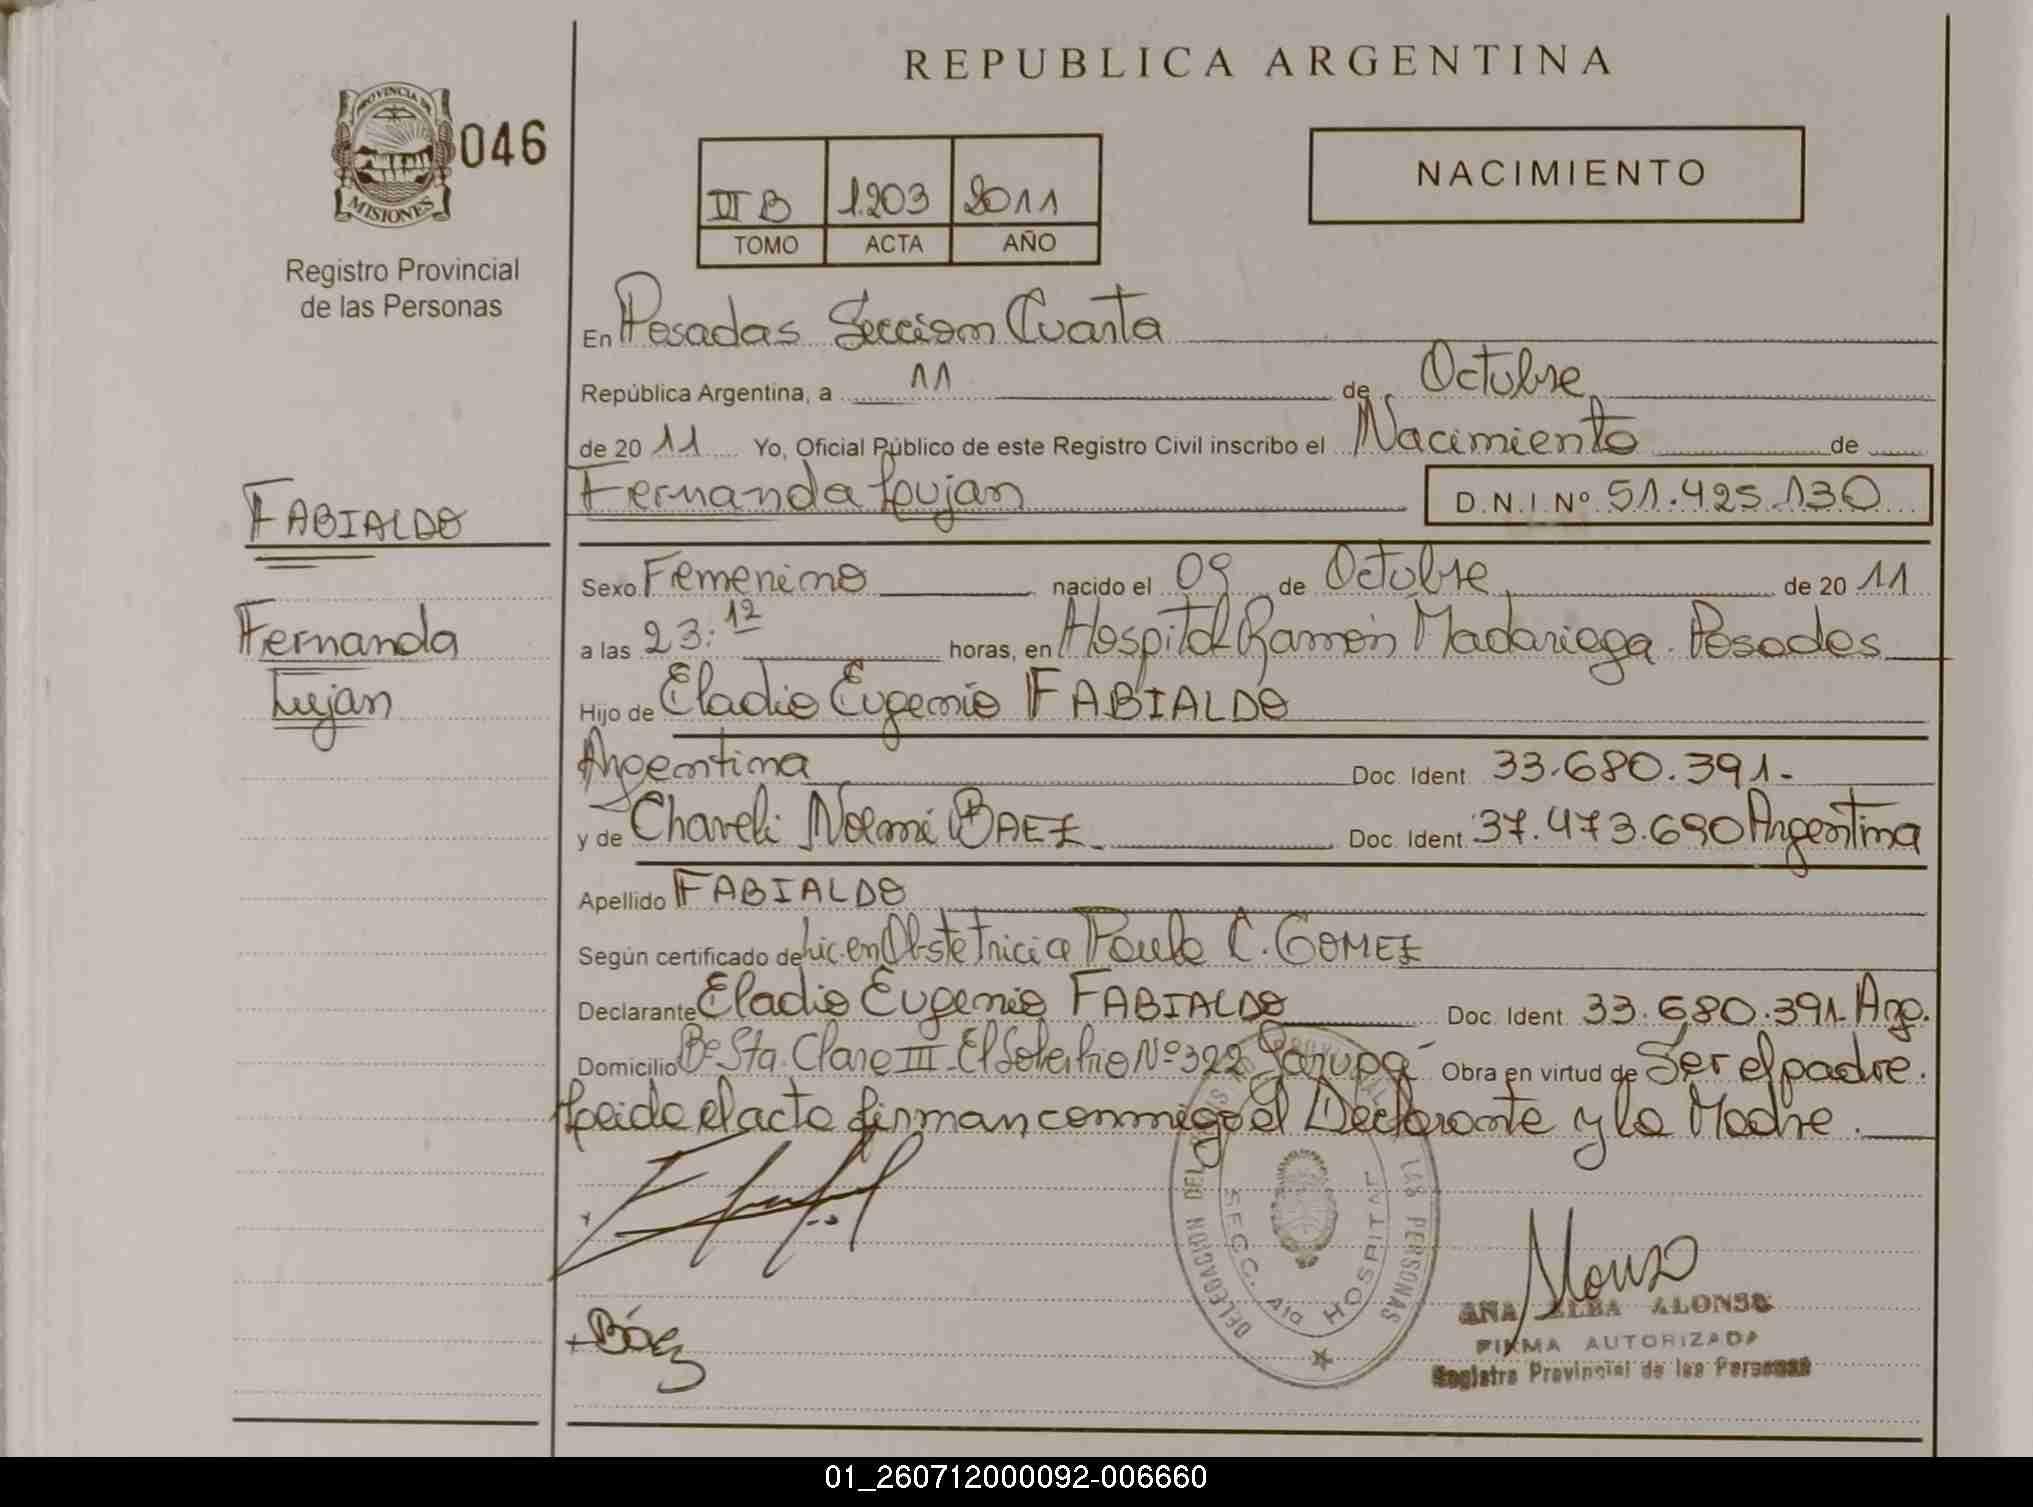 REPUBLICA ARGENTINA
PROVINCIA DE
MISIONES
046
Registro Provincial
de las Personas
II B 1.203 2011
TOMO ACTA AÑO
NACIMIENTO
En Posadas Seccion Cuarta
República Argentina, a 11 de Octubre
de 20 11 Yo, Oficial Público de este Registro Civil inscribo el Nacimiento de
Fernanda Lujan D.N.I. Nº 51.425.130
FABIALDO
Fernanda
Lujan
Sexo Femenino nacido el 09 de Octubre de 20 11
a las 23:12 horas, en Hospital Ramón Madariaga. Posadas
Hijo de Eladio Eugenio FABIALDO
Argentina Doc. Ident. 33.680.391.-
y de Chaveli Noemi BAEZ Doc. Ident. 37.473.690 Argentina
Apellido FABIALDO
Según certificado de Lic. en Obstetricia Paula C. GOMEZ
Declarante Eladio Eugenio FABIALDO Doc. Ident. 33.680.391. Arg.
Domicilio Bº Sta. Clara III - El Nº 322 Garupá Obra en virtud de Ser el padre.
Leida el acta firman conmigo el Declarante y la Madre.
DELEGACION DEL LAS PERSONAS
SECC. 4ta HOSPITAL
Báez
Alonso
ANA ELBA ALONSO
FIRMA AUTORIZADA
Registro Provincial de las Personas
01_260712000092-006660